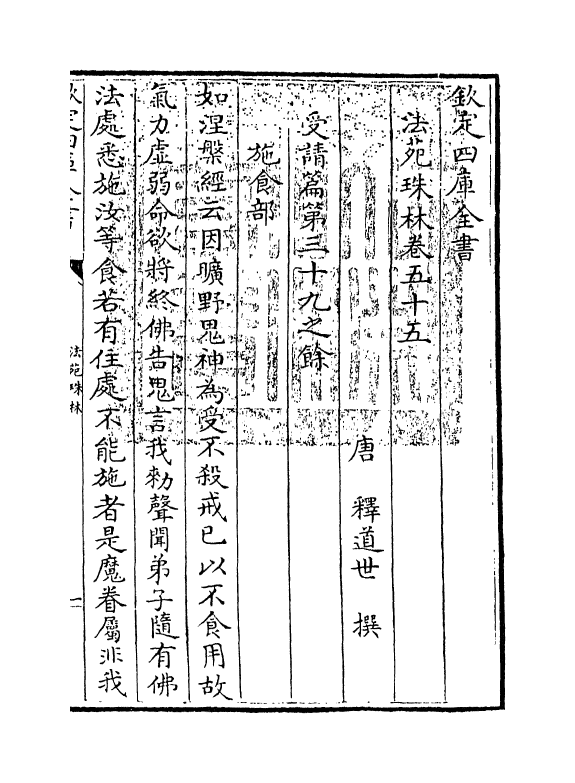 欽定四庫全書
法苑珠林卷五十五
唐　釋道世　撰
受請篇第三十九之餘
施食部
如涅槃經云因曠野鬼神為受不殺戒已以不食用故
氣力虛弱命欲將終佛告鬼言我勑聲聞弟子隨有佛
法處悉施汝等食若有住處不能施者是魔眷屬非我
欽定四庫全書
法苑珠林
一